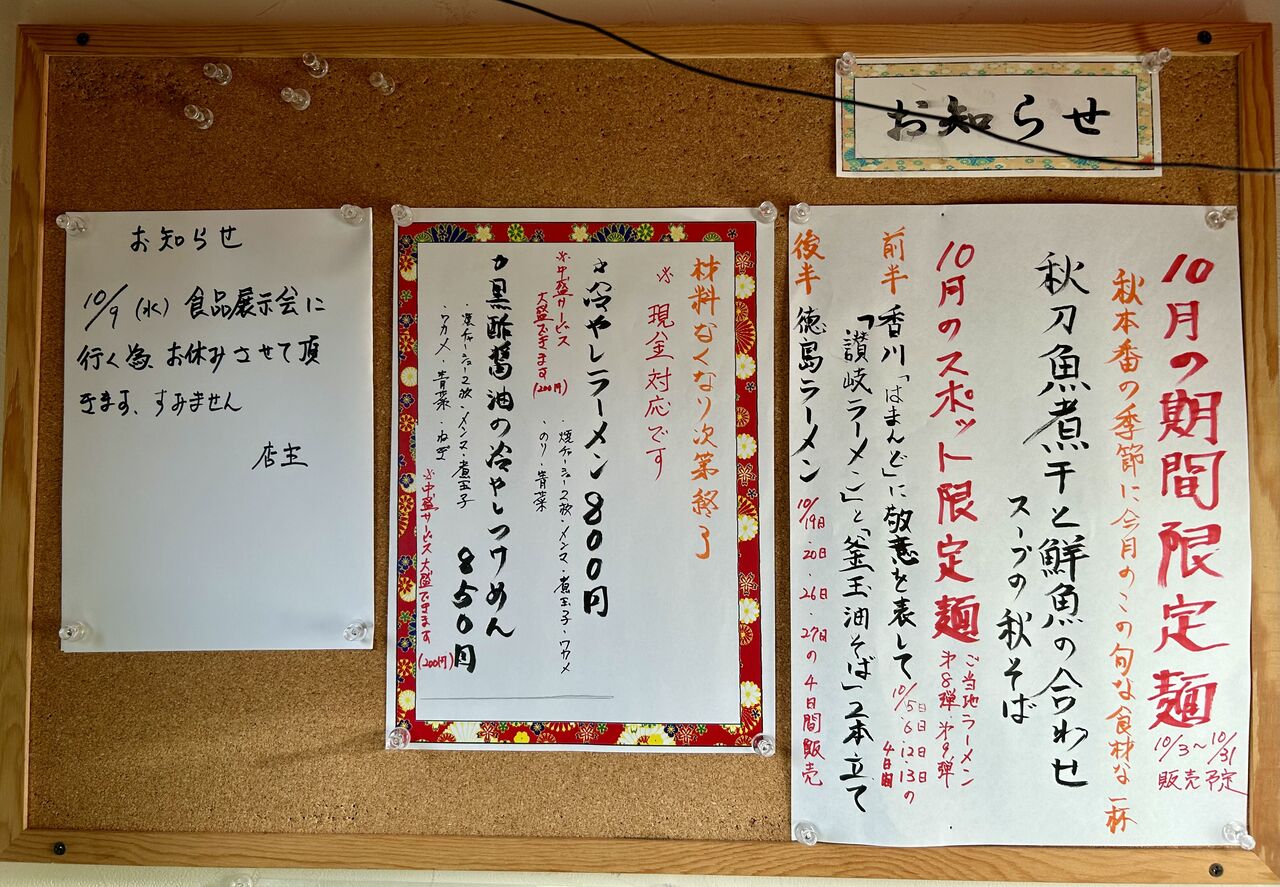 お知らせ
10月の期間限定麺
10/3〜10/31
販売予定
秋本番の季節に今月のこの旬な食材な一杯
秋刀魚煮干と鮮魚の合わせ
スープの秋そば
10月のスポット限定麺
ご当地ラーメン
第8弾・第9弾
前半 香川「はまんど」に敬意を表して
10/5日・6日・12日・13日の
4日間
「讃岐ラーメン」と「釜玉油そば」2本立て
後半 徳島ラーメン 10/19日・20日・26日・27日の4日間販売
材料なくなり次第終了
※現金対応です
冷やしラーメン 800円
・焼チャーシュー2枚・メンマ・煮玉子・ワカメ
・のり・青菜
※中盛サービス
大盛できます(200円)
黒酢醤油の冷やしつけめん
850円
・焼チャーシュー2枚・メンマ・煮玉子
・ワカメ・青菜・ねぎ
※中盛サービス大盛できます(200円)
お知らせ
10/9 (水) 食品展示会に
行く為、お休みさせて頂
きます、すみません
店主